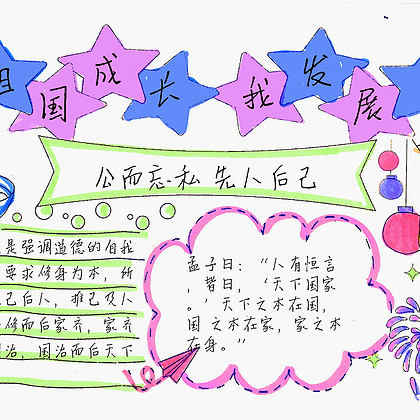 国成长我发展
公而忘私 先人后己
是强调道德的自我
要求修身为本，所
己后人，推己及人
修而后家齐，家齐
治，国治而后天下
孟子曰：“人有恒言
，皆曰，‘天下国家
。’天下之本在国，
国之本在家，家之本
在身。”